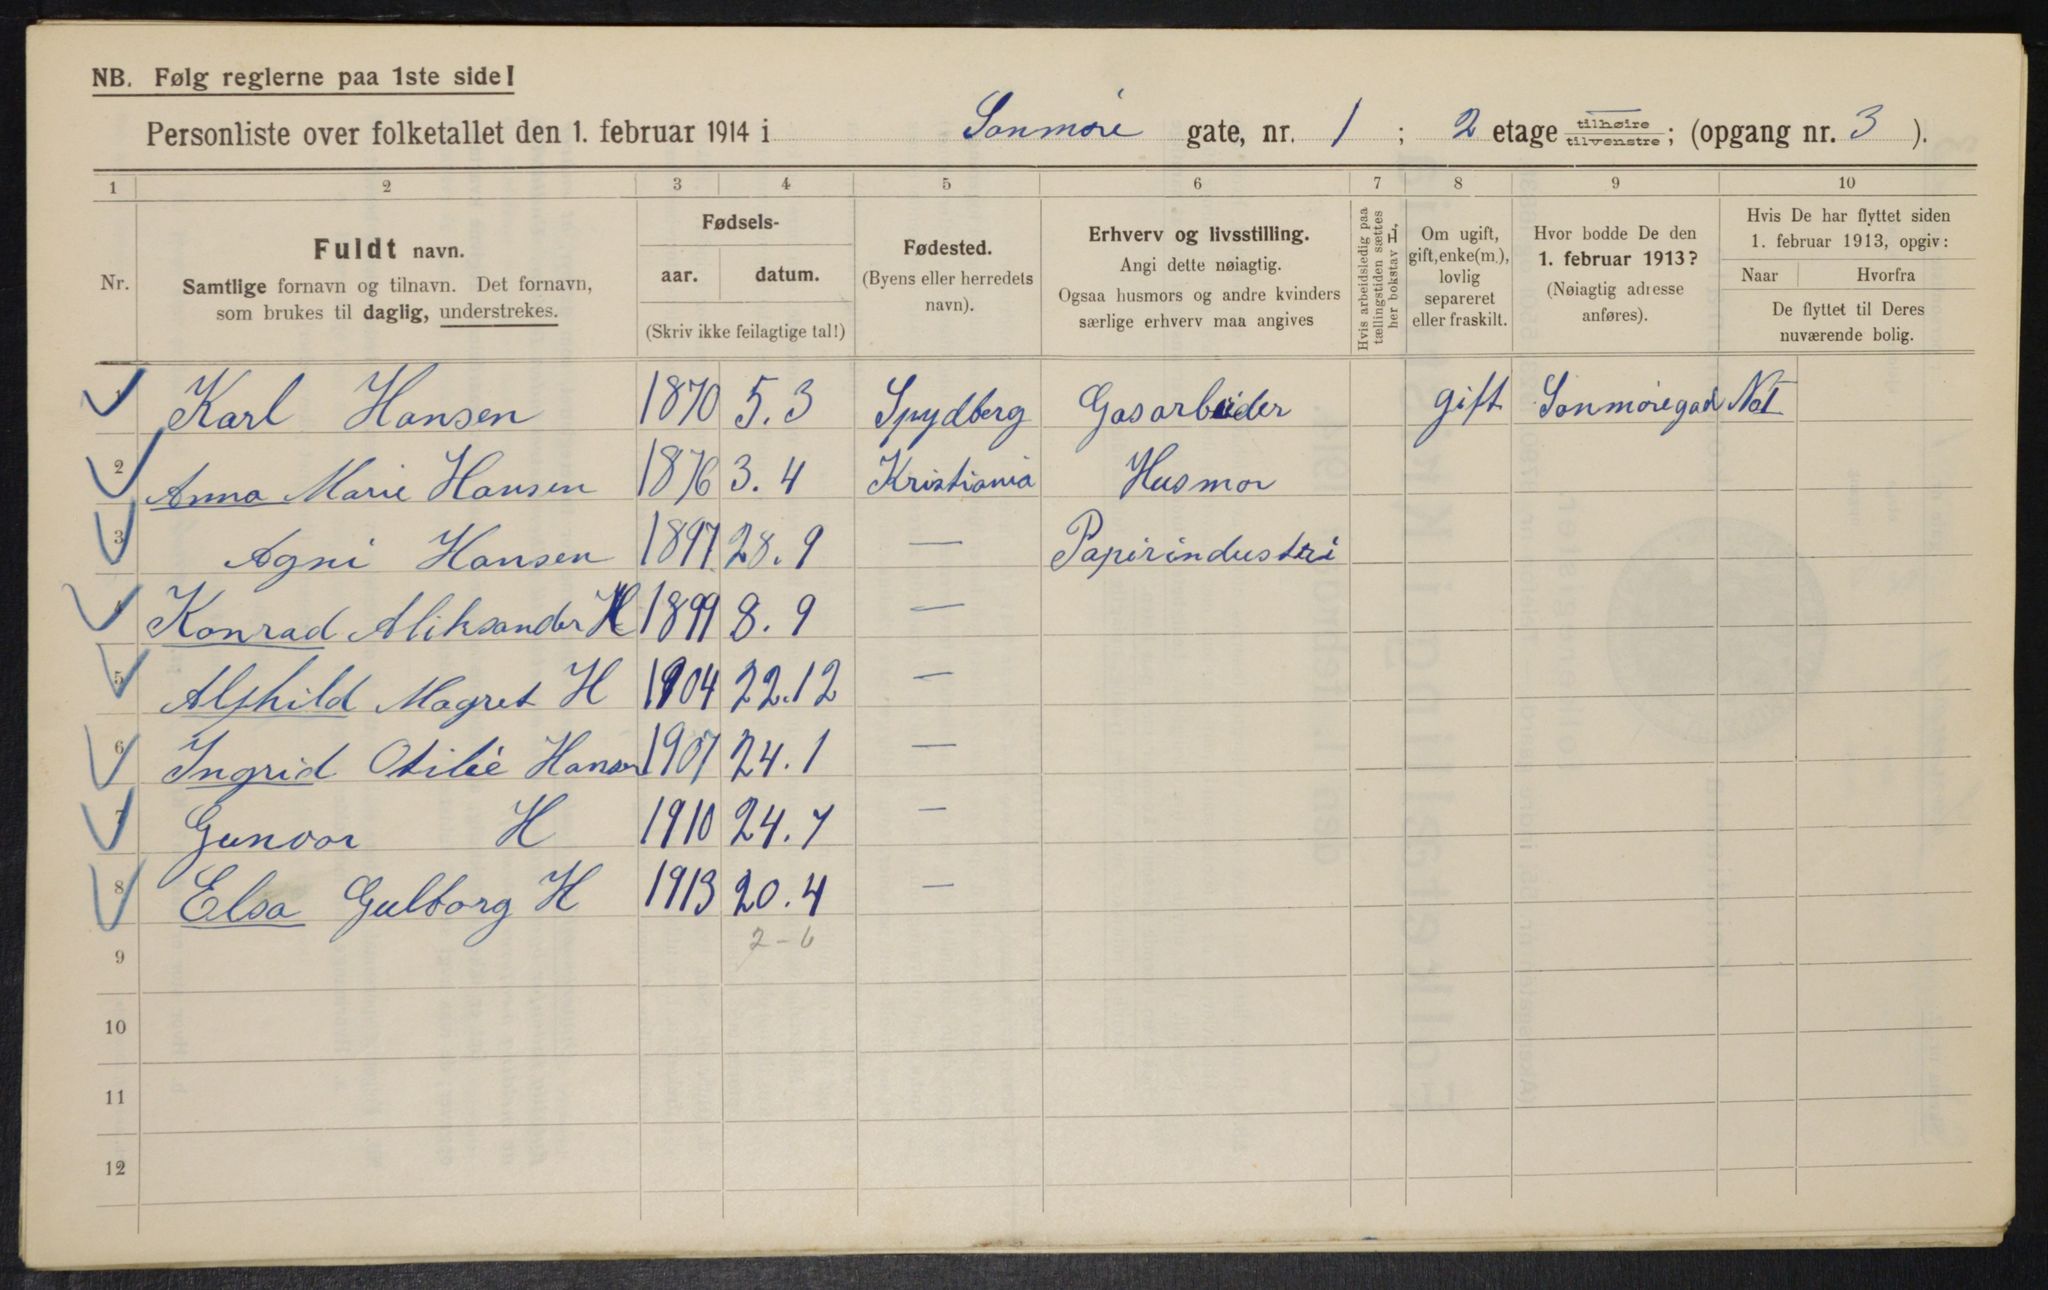 NB. Følg reglerne paa 1ste side!
Personliste over folketallet den 1. februar 1914 i Sonmøre gate, nr. 1 ; 2 etage tilhøire tilvenstre; (opgang nr. 3 ).
1 2 3 4 5 6 7 8 9 10
Nr.
Fuldt navn.
Samtlige fornavn og tilnavn. Det fornavn,
som brukes til daglig, understrekes.
Fødsels-
aar. datum.
(Skriv ikke feilagtige tal!)
Fødested.
(Byens eller herredets
navn).
Erhverv og livsstilling.
Angi dette nøiagtig.
Ogsaa husmors og andre kvinders
særlige erhverv maa angives
Hvis arbeidsledig paa
tællingstiden sættes
her bokstav L.
Om ugift,
gift, enke(m.),
lovlig
separeret
eller fraskilt.
Hvor bodde De den
1. februar 1913?
(Nøiagtig adresse
anføres).
Hvis De har flyttet siden
1. februar 1913, opgiv:
Naar Hvorfra
De flyttet til Deres
nuværende bolig.
1 Karl Hansen 1870 5.3 Spydberg Gasarbeider gift Sonmøregad Not
2 Anna Marie Hansen 1876 3.4 Kristiania Husmor
3 Agni Hansen 1897 28.9 — Papirindustri
4 Konrad Aliksander H 1899 8.9 —
5 Alfhild Magret H 1904 22.12 —
6 Ingrid Otilie Hansen 1907 24.1 —
7 Gunvor H 1910 24.7 —
8 Elsa Gulborg H 1913 20.4 —
2-6
9
10
11
12